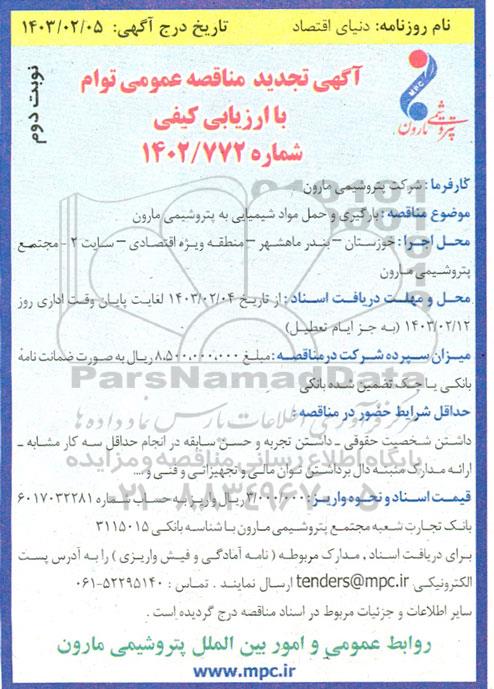 نام روزنامه: دنیای اقتصاد
تاریخ درج آگهی: ۱۴۰۳/۰۲/۰۵
MPC
پتروشیمی مارون
نوبت دوم
آگهی تجدید مناقصه عمومی توام
با ارزیابی کیفی
شماره ۱۴۰۲/۷۷۲
کارفرما: شرکت پتروشیمی مارون
موضوع مناقصه: بارگیری و حمل مواد شیمیایی به پتروشیمی مارون
محل اجرا: خوزستان – بندر ماهشهر – منطقه ویژه اقتصادی – سایت ۲ - مجتمع
پتروشیمی مارون
محل و مهلت دریافت اسناد: از تاریخ ۱۴۰۳/۰۲/۰۴ لغایت پایان وقت اداری روز
۱۴۰۳/۰۲/۱۲ (به جز ایام تعطیل)
میزان سپرده شرکت درمناقصه: مبلغ ۸،۵۰۰،۰۰۰،۰۰۰ ریال به صورت ضمانت نامه
بانکی یا چک تضمین شده بانکی
ParsNamadData
حداقل شرایط حضور در مناقصه:
داشتن شخصیت حقوقی - داشتن تجربه و حسن سابقه در انجام حداقل سه کار مشابه -
ارائه مدارک مثبته دال برداشتن توان مالی و تجهیزاتی و فنی و...
قیمت اسناد و نحوه واریز: ۳/۰۰۰/۰۰۰ ریال واریز به حساب شماره ۶۰۱۷۰۳۲۲۸۱
بانک تجارت شعبه مجتمع پتروشیمی مارون با شناسه بانکی ۳۱۱۵۰۱۵
برای دریافت اسناد، مدارک مربوطه (نامه آمادگی و فیش واریزی) را به آدرس پست
الکترونیکی tenders@mpc.ir ارسال نمایند. تماس: ۵۲۲۹۵۱۴۰-۰۶۱
سایر اطلاعات و جزئیات مربوط در اسناد مناقصه درج گردیده است.
روابط عمومی و امور بین الملل پتروشیمی مارون
www.mpc.ir